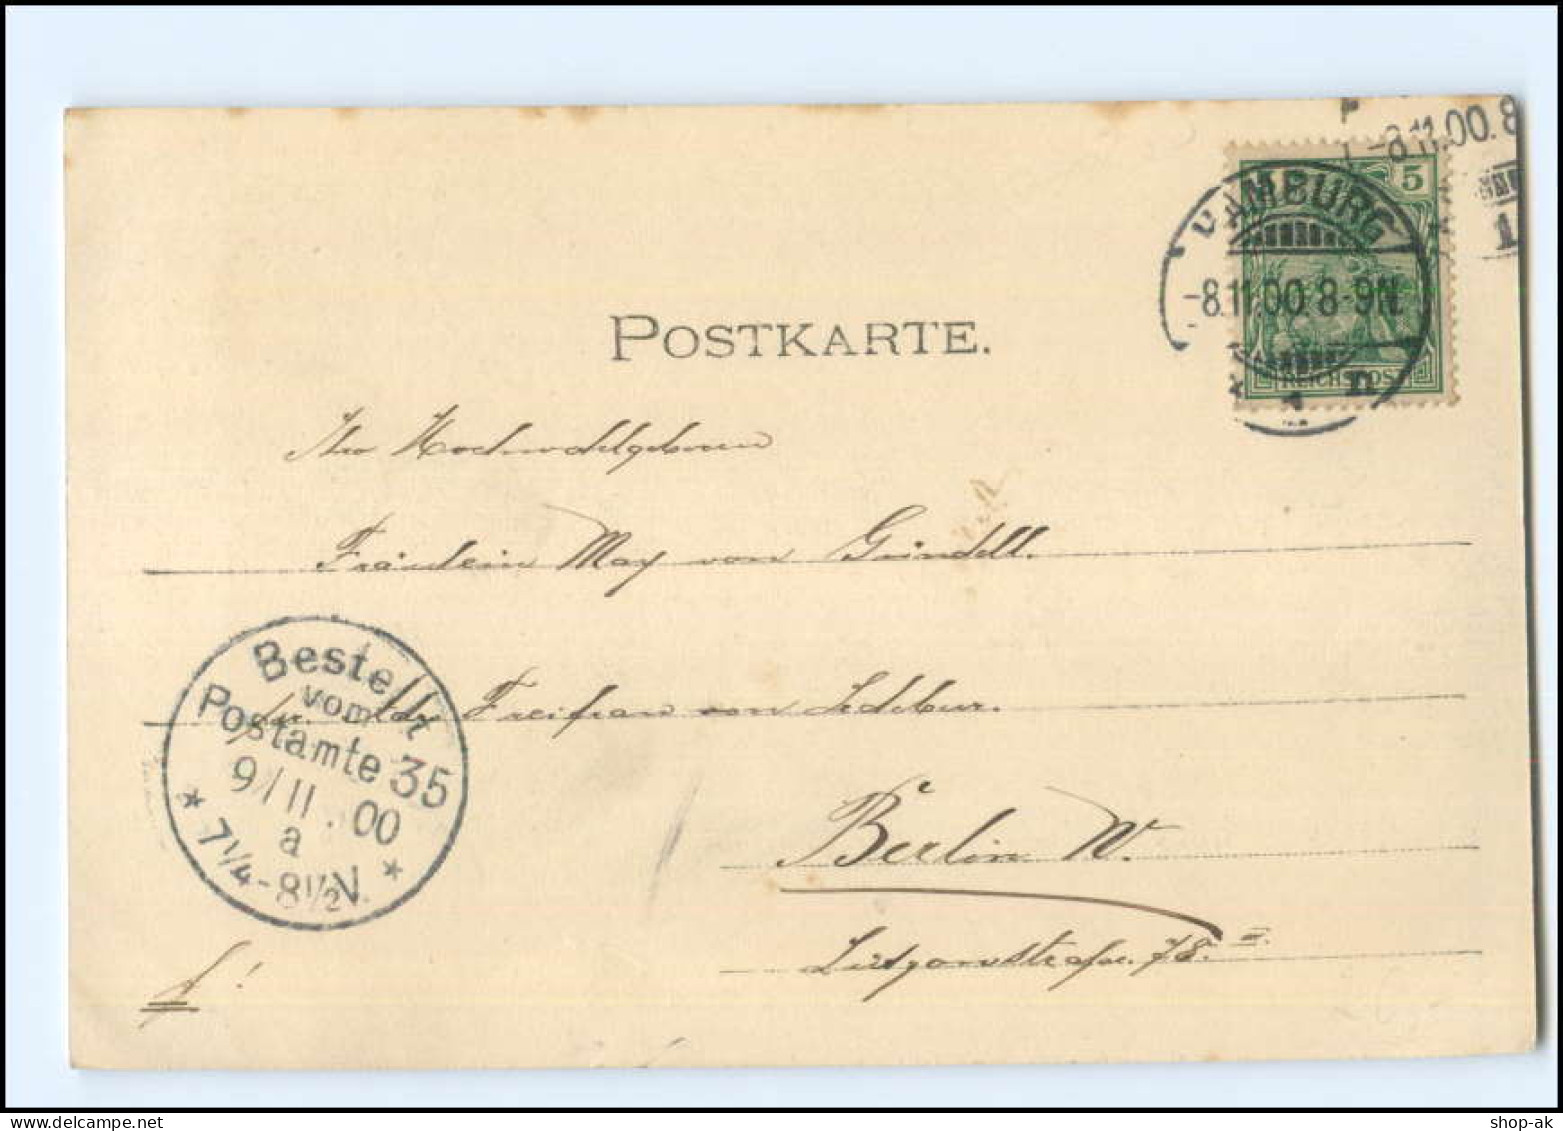 -8.11.00.8
1
5
HAMBURG
-8.11.00.8-9N.
1 n
REICHSPOST
POSTKARTE.
Ihro Hochwohlgeboren
Fräulein May von Gründell.
Freifrau von Ledebur.
Bestellt
vom
Postamte 35
9/11.00
a
7¼-8½N.
Berlin W.
Lützowstraße 78. II.
f!
shop-ak